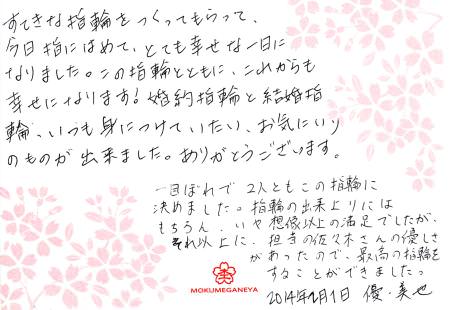 すてきな指輪をつくってもらって、
今日指にはめて、とても幸せな一日に
なりました。この指輪とともに、これからも
幸せになります!婚約指輪と結婚指
輪、いつも身につけていたい、お気にいり
のものが出来ました。ありがとうございます。
一目ぼれで2人ともこの指輪に
決めました。指輪の出来上りには
もちろん、いや想像以上の満足でしたが、
それ以上に、担当の佐久木さんの優しさ
があったので、最高の指輪を
することができましたっ
MOKUMEGANEYA
2014年2月1日 優・美也